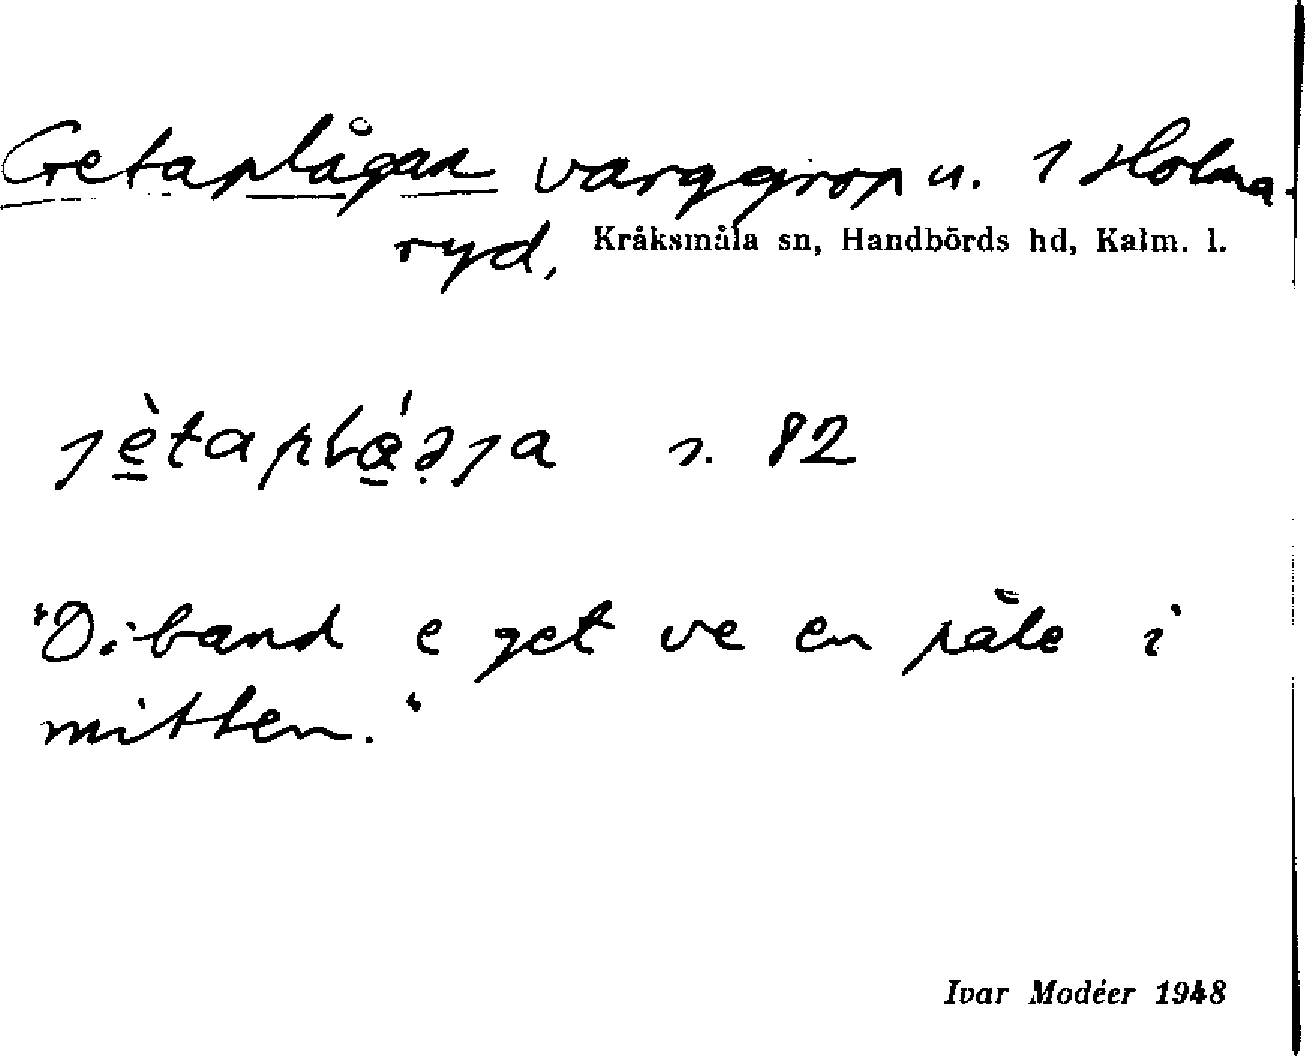 Getaplågan varggrop u. 1 Holma-
ryd, Kråksmåla sn, Handbörds hd, Kalm. l.
s. 82
"Di band e get ve en påle i
mitten."
Ivar Modéer 1948